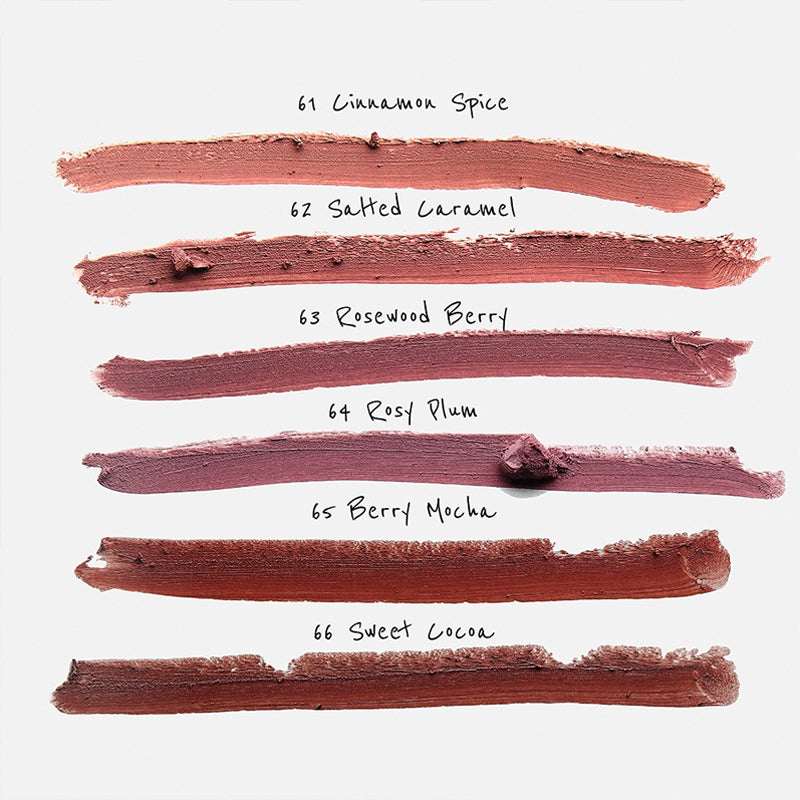 61 Cinnamon Spice
62 Salted Caramel
63 Rosewood Berry
64 Rosy Plum
65 Berry Mocha
66 Sweet Cocoa